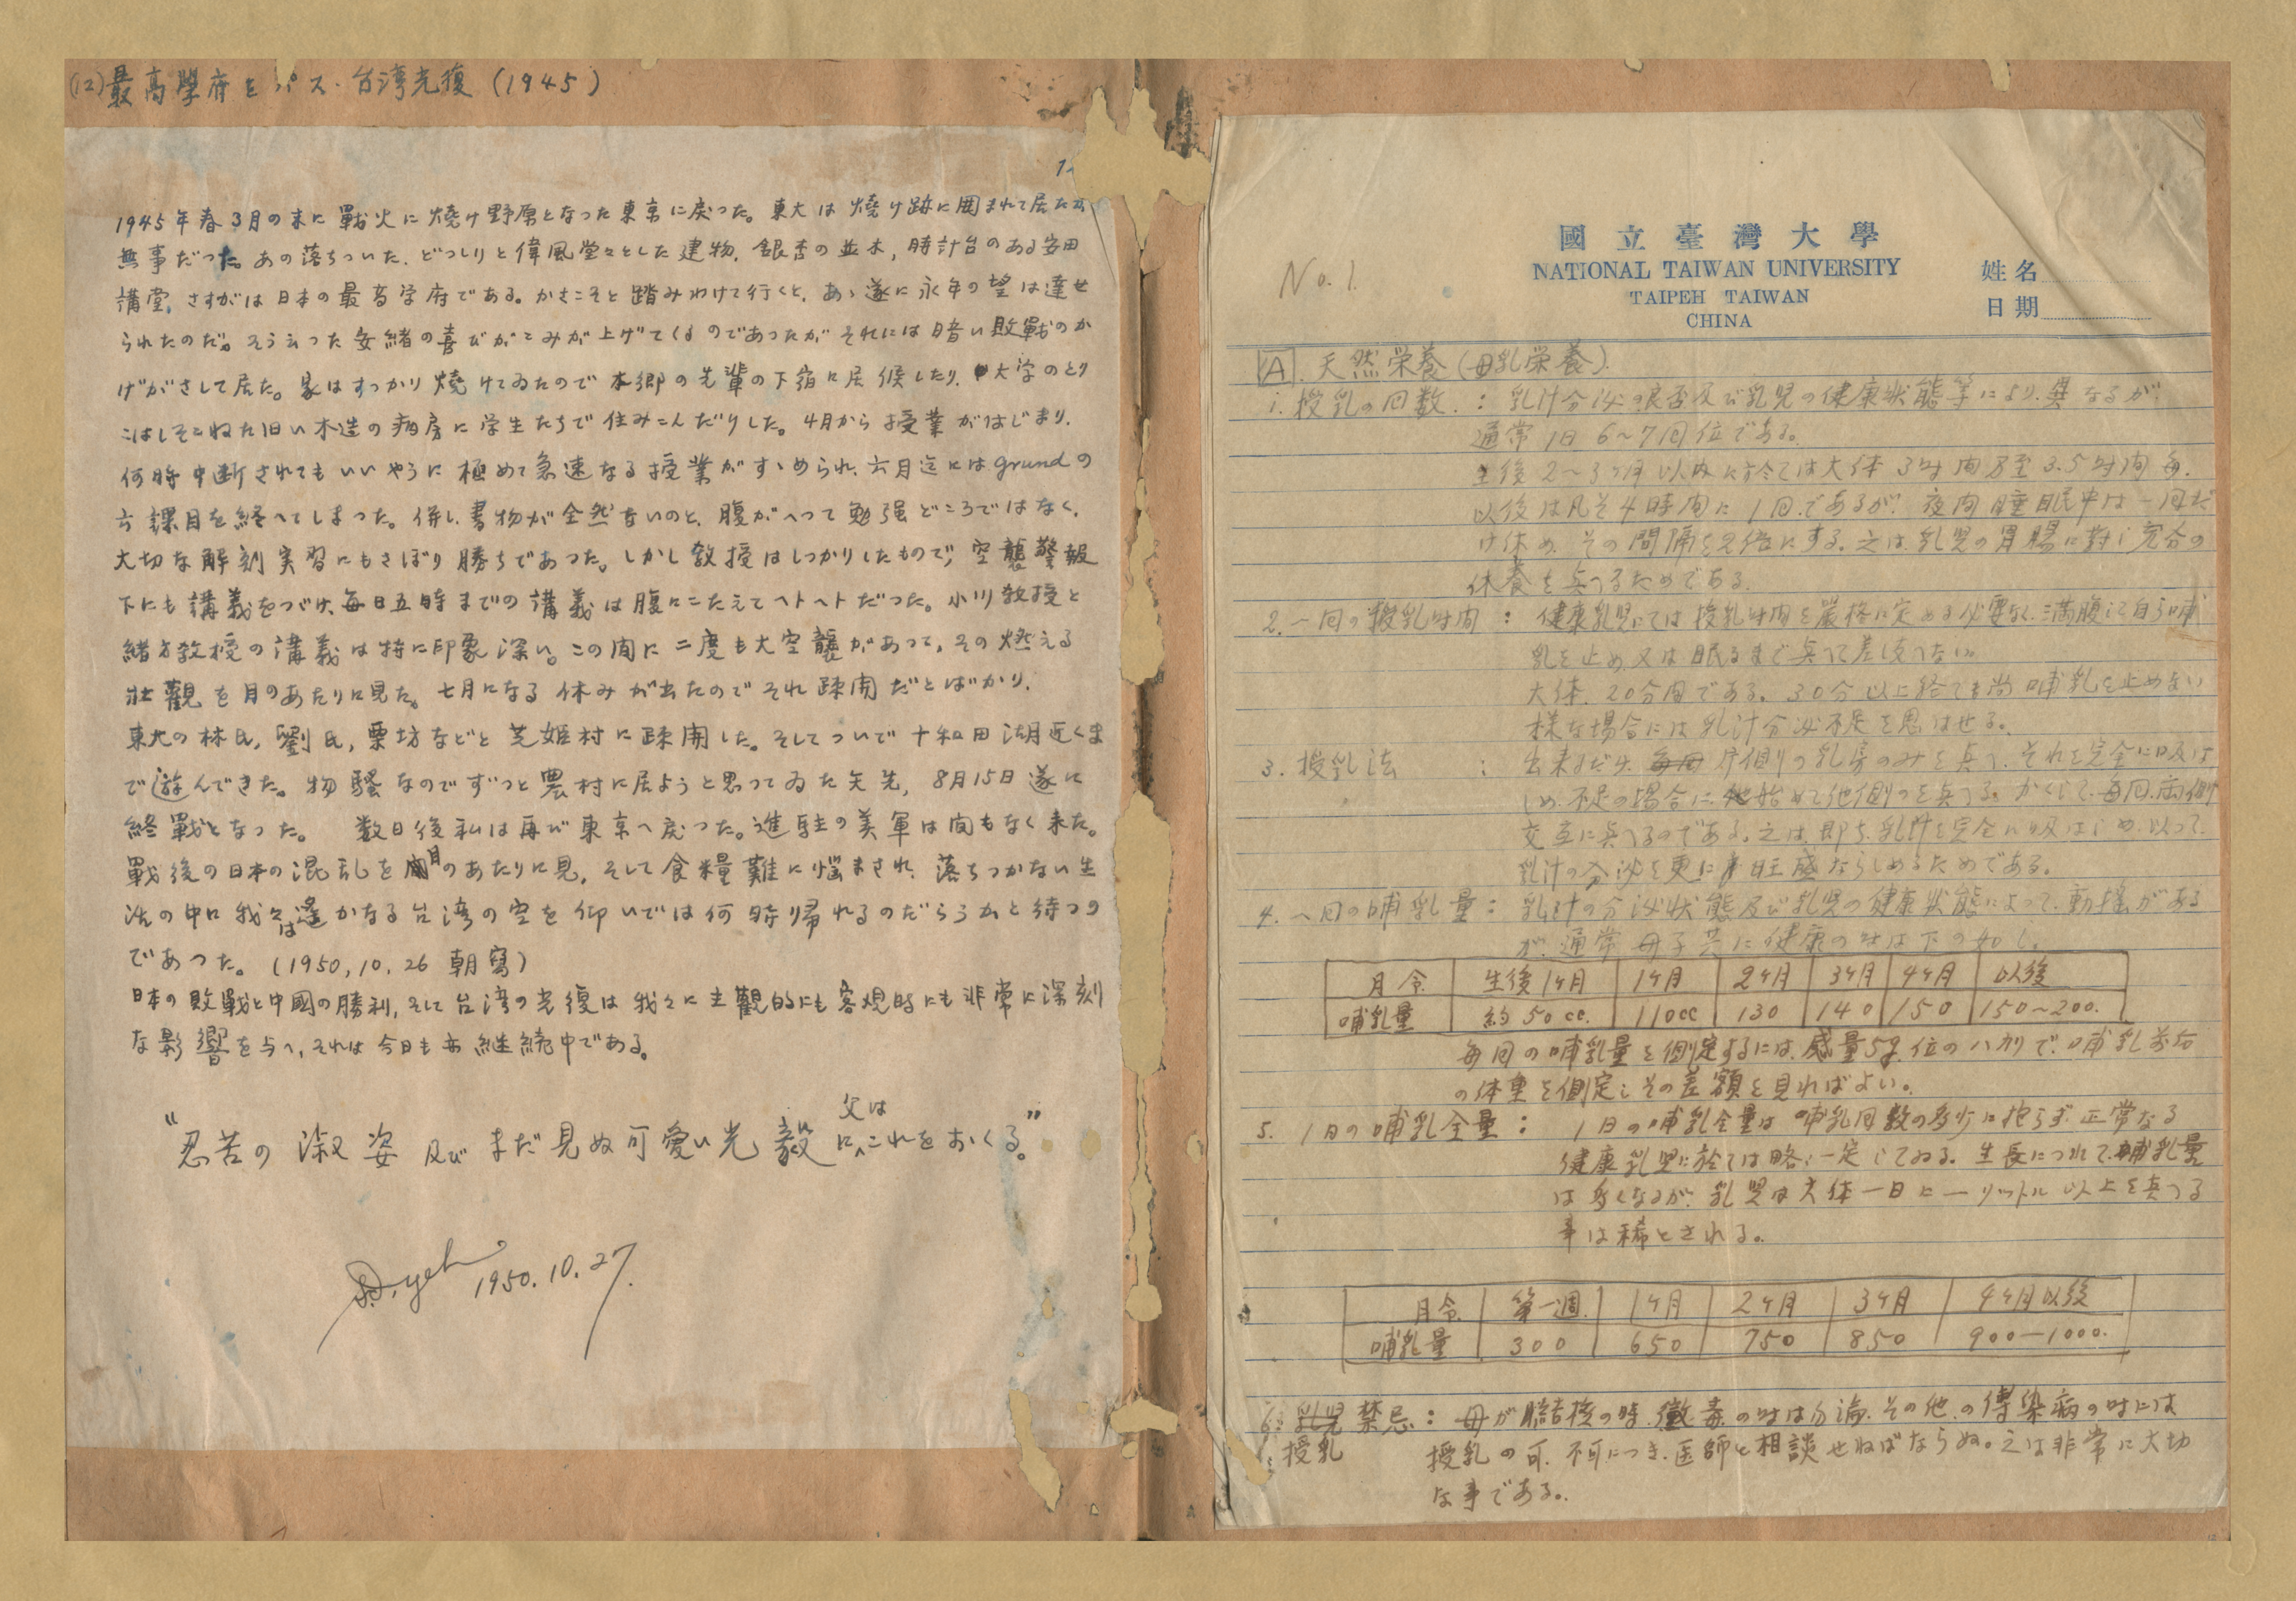 (12)最高學府をパス・台湾光復(1945)
1945年春3月の末に戰火に燒け野原となった東京に戻つた。東大は燒け跡に囲まれて居たが
無事だつた。あの落ちついた、どっしりと偉風堂々とした建物、銀杏の並木,時計台のある安田
講堂、さすがは日本の最高学府である。かさこそと踏みわけて行くと、あゝ遂に永年の望は達せ
られたのだ。そう云つた安緒の喜びがこみが上げてくるのであつたがそれには暗い敗戰のか
げがさして居た。家はすっかり燒けてゐたので本郷の先輩の下宿に居候したり、大学のとり
こはしそこねた旧い木造の病房に学生たちで住みこんだりした。4月から授業がはじまり、
何時中断されてもいいやうに極めて急速なる授業がすゝめられ、六月迄にはgrundの
六課目を終へてしまつた。併し書物が全然ないのと、腹がへつて勉强どころではなく、
大切な解剖実習にもさぼり勝ちであつた。しかし教授はしつかりしたもので、空襲警報
下にも講義をつづけ、毎日五時までの講義は腹にこたえてヘトヘトだつた。小川教授と
緒方教授の講義は特に印象深い。この间に二度も大空襲があつて、その燃える
壯觀を目のあたりに見た。七月になる休みが出たのでそれ疎開だとばかり、
東大の林氏,劉氏,栗坊などと芝姫村に疎開した。そしてついで十和田湖近くま
で遊んできた。物騒なのでずつと農村に居ようと思つてゐた矢先,8月15日遂に
終戰となった。 数日後私は再び東京へ戻つた。進駐の美軍は间もなく来た。
戰後の日本の混乱を目のあたりに見,そして食糧難に悩まされ、落ちつかない生
活の中に我々は遙かなる台湾の空を仰いでは何時帰れるのだらうかと待つの
であつた。(1950,10,26 朝寫)
日本の敗戰と中國の勝利,そして台湾の光復は我々に主觀的にも客観的にも非常に深刻
な影響を与へ,それは今日も亦継続中である。
“忍苦の淑姿及びまだ見ぬ可愛い光毅に父はこれをおくる。”
S.D.yeh 1950.10.27.
No.1.
國立臺灣大學
NATIONAL TAIWAN UNIVERSITY
TAIPEH TAIWAN
CHINA
姓名
日期
A 天然栄養(母乳栄養).
1. 授乳の回数.: 乳汁分泌の良否及び乳児の健康状態等により異なるが.
通常1日6~7回位である。
生後2~3ヶ月以内に於ては大体3時间乃至3.5時间毎.
以後は凡そ4時间に1回.であるが.夜间睡眠中は一回だ
け休め.その間隔を2倍にする.之は.乳児の胃腸に対し充分の
休養を与へるためである.
2. 一回の授乳时间: 健康乳児にては授乳时间を厳格に定める必要なく.満腹して自ら哺
乳を止め又は眠るまで与へて差し支へない。
大体.20分间である。30分以上経ても尚哺乳を止めない
様な場合には乳汁分泌不足を思はせる。
3. 授乳法: 出来るだけ片側の乳房のみを与へ.それを完全に吸は
しめ.不足の場合に始めて他側のを与へる。かくして.毎回.両側
交互に与へるのである.之は.即ち.乳汁を完全に吸はしめ.以って.
乳汁の分泌を更に旺盛ならしめるためである。
4. 一回の哺乳量: 乳汁の分泌状態及び乳児の健康状態によって.動揺がある
が.通常.母子共に健康の时は下の如し.
月令 生後1ヶ月 1ヶ月 2ヶ月 3ヶ月 4ヶ月 以後
哺乳量 約50cc. 110cc 130 140 150 150~200.
毎回の哺乳量を側定するには.感量5g.位のハカリで.哺乳前后
の体重を側定しその差額を見ればよい。
5. 1日の哺乳全量: 1日の哺乳全量は哺乳回数の多少に拘らず.正常なる
健康乳児に於ては略ゝ一定してゐる.生長につれて.哺乳量
は多くなるが.乳児は大体一日に一リットル以上を与へる
事は稀とされる。
月令 第一週 1ヶ月 2ヶ月 3ヶ月 4ヶ月以後
哺乳量 300 650 750 850 900—1000.
6: 授乳禁忌: 母が肺結核の時.黴毒の时は勿論.その他.の傳染病の时には
授乳の可.不可につき.医師と相談せねばならぬ。之は非常に大切
な事である。.